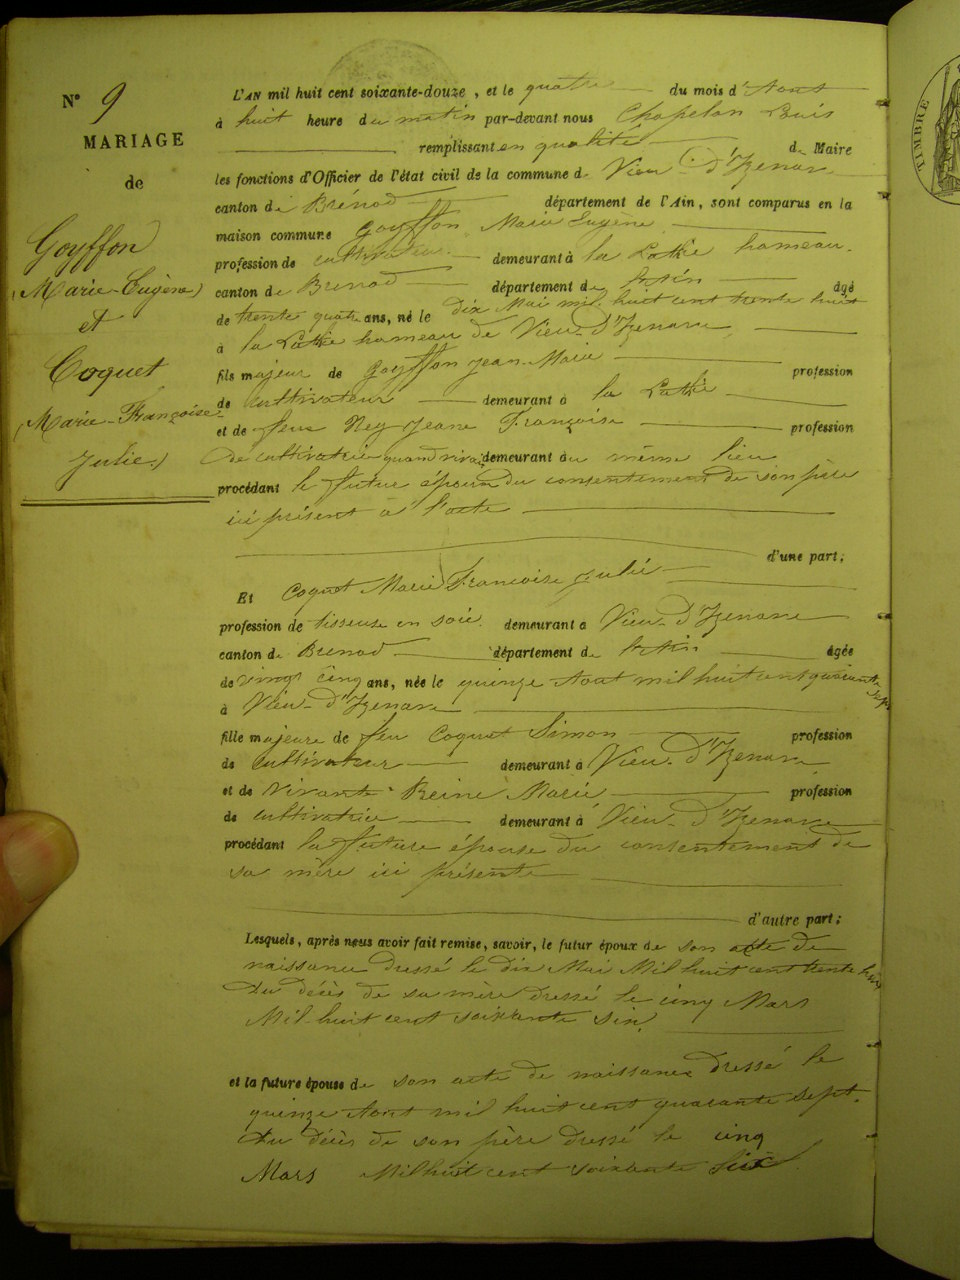 N° 9
MARIAGE
de
Goyffon
(Marie-Eugène)
et
Coquet
(Marie-Françoise
Julie)
L'AN mil huit cent soixante-douze, et le quatre du mois d'Aout
à huit heure du matin par-devant nous Chapelon Louis
remplissant en qualité de Maire
les fonctions d'Officier de l'état civil de la commune de Vieu-d'Izenave
canton de Brénod département de l'Ain, sont comparus en la
maison commune Goyffon Marie Eugène
profession de cultivateur demeurant à la Lathe hameau
canton de Brenod département de l'Ain âgé
de trente quatre ans, né le dix Mai mil huit cent trente huit
à la Lathe hameau de Vieu-d'Izenave
fils majeur de Goyffon Jean-Marie profession
de cultivateur demeurant à la Lathe
et de feue Ney Jeane Françoise profession
de cultivatrice quand vivait demeurant au même lieu
procédant le futur époux du consentement de son père
ici présent à l'acte
d'une part;
Et Coquet Marie Françoise Julie
profession de tisseuse en soie demeurant à Vieu-d'Izenave
canton de Brenod département de l'Ain âgée
de vingt cinq ans, née le quinze Aout mil huit cent quarante sept
à Vieu-d'Izenave
fille majeure de feu Coquet Simon profession
de cultivateur demeurant à Vieu-d'Izenave
et de vivante Reine Marie profession
de cultivatrice demeurant à Vieu-d'Izenave
procédant la future épouse du consentement de
sa mère ici présente
d'autre part;
Lesquels, après nous avoir fait remise, savoir, le futur époux de son acte de
naissance dressé le dix Mai Mil huit cent trente huit
Du décès de sa mère dressé le cinq Mars
Mil huit cent soixante six
et la future épouse de son acte de naissance dressé le
quinze Aout mil huit cent quarante sept.
Du décès de son père dressé le cinq
Mars Mil huit cent soixante six
TIMBRE